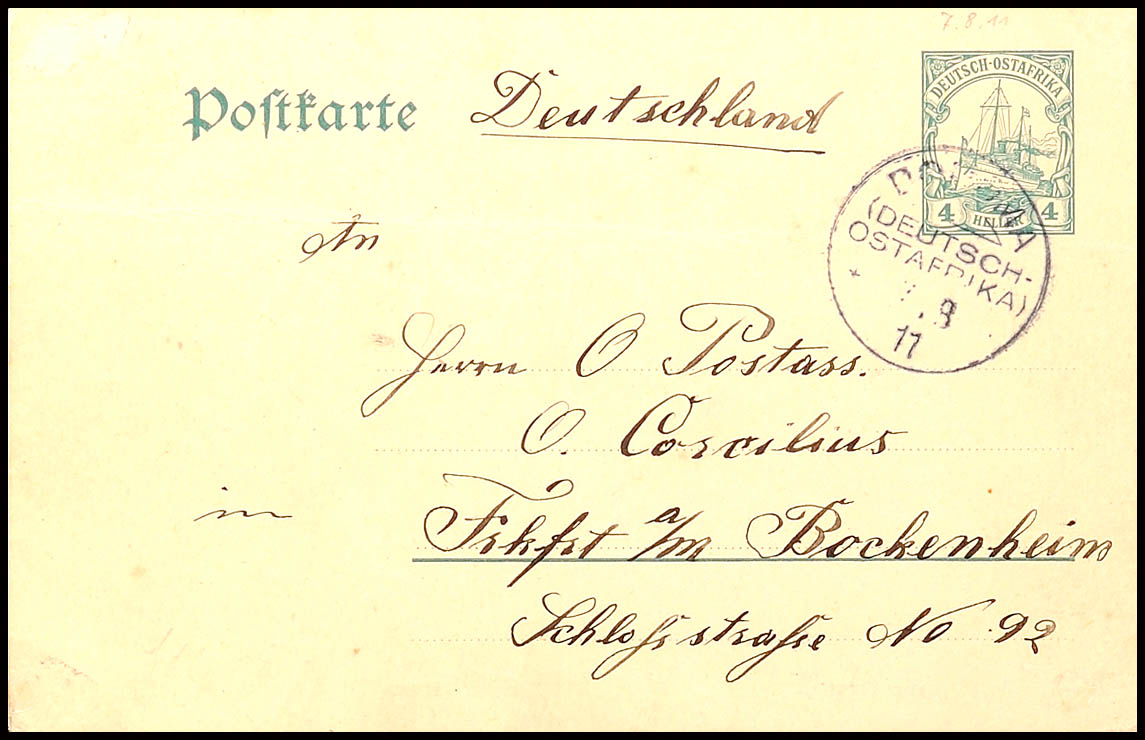 7.8.11
Postkarte
Deutschland
DEUTSCH-OSTAFRIKA
4 HELLER 4
(DEUTSCH-
OSTAFRIKA)
11
An
Herrn O Postass.
O. Corcilius
in Frkfrt a/m Bockenheim
Schlossstrasse No 92